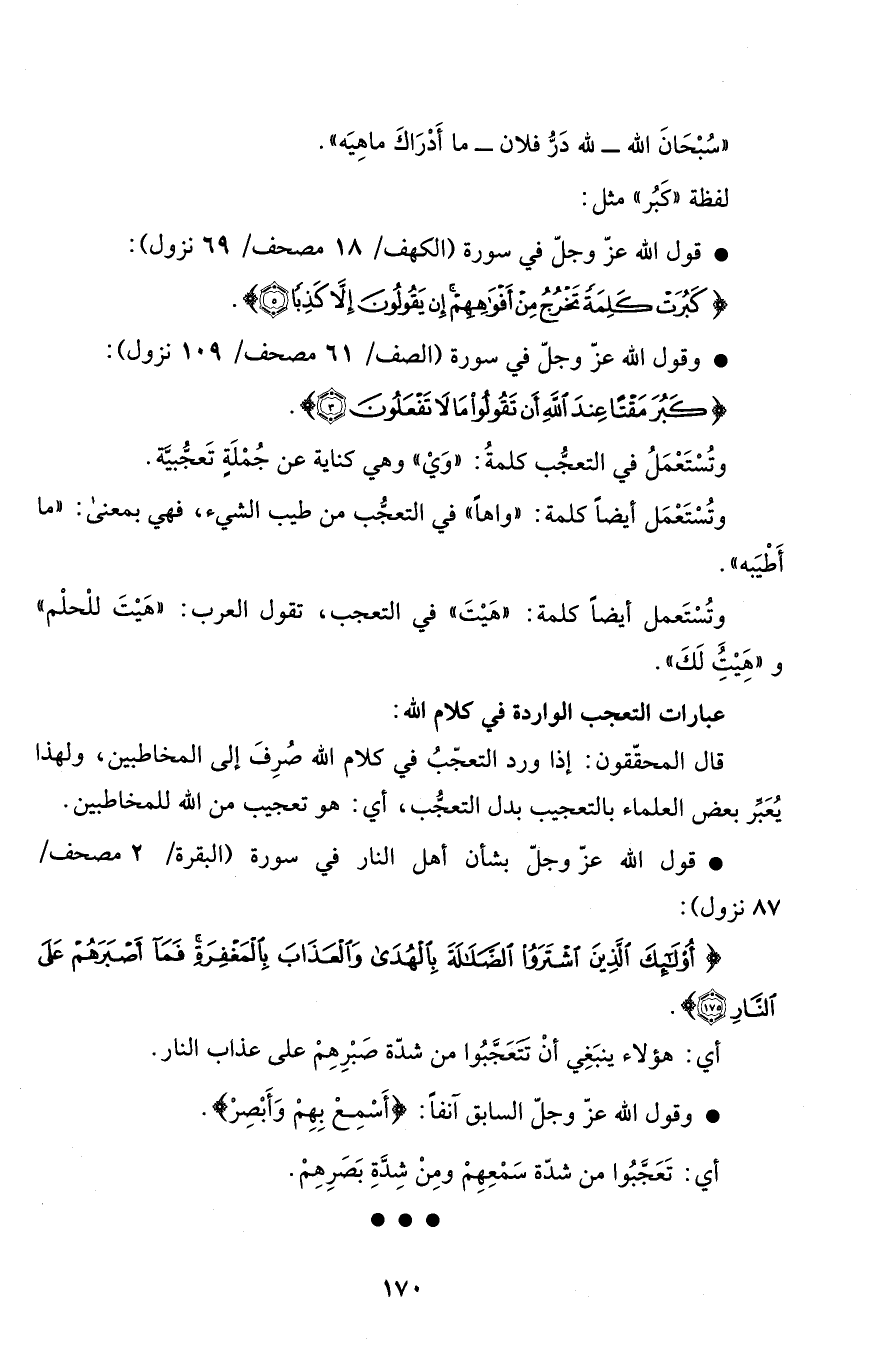 «سُبْحَانَ الله ــ لله دَرُّ فلان ــ ما أَدْرَاكَ ماهِيَه».
لفظة «كَبُر» مثل:
● قول الله عزّ وجلّ في سورة (الكهف/ ١٨ مصحف/ ٦٩ نزول):
﴿كَبُرَتْ كَلِمَةً تَخْرُجُ مِنْ أَفْوَاهِهِمْ إِن يَقُولُونَ إِلَّا كَذِبًا ٥﴾.
● وقول الله عزّ وجلّ في سورة (الصف/ ٦١ مصحف/ ١٠٩ نزول):
﴿كَبُرَ مَقْتًا عِندَ ٱللَّهِ أَن تَقُولُوا۟ مَا لَا تَفْعَلُونَ ٣﴾.
وتُسْتَعْمَلُ في التعجُّب كلمةُ: «وَيْ» وهي كناية عن جُمْلَةٍ تَعجُّبيَّة.
وتُسْتَعْمَل أيضاً كلمة: «واهاً» في التعجُّب من طيب الشيء، فهي بمعنىٰ: «ما
أَطْيَبه».
وتُسْتَعمل أيضاً كلمة: «هَيْتَ» في التعجب، تقول العرب: «هَيْتَ للْحلْم»
و «هَِيْتَُِ لَكَ».
عبارات التعجب الواردة في كلام الله:
قال المحقّقون: إذا ورد التعجّبُ في كلام الله صُرِفَ إلى المخاطبين، ولهذا
يُعَبِّر بعض العلماء بالتعجيب بدل التعجُّب، أي: هو تعجيب من الله للمخاطبين.
● قول الله عزّ وجلّ بشأن أهل النار في سورة (البقرة/ ٢ مصحف/
٨٧ نزول):
﴿أُو۟لَٰٓئِكَ ٱلَّذِينَ ٱشْتَرَوُا۟ ٱلضَّلَٰلَةَ بِٱلْهُدَىٰ وَٱلْعَذَابَ بِٱلْمَغْفِرَةِ ۚ فَمَآ أَصْبَرَهُمْ عَلَى
ٱلنَّارِ ١٧٥﴾.
أي: هؤلاء ينبَغِي أنْ تَتَعَجَّبُوا من شدّة صَبْرِهِمْ على عذاب النار.
● وقول الله عزّ وجلّ السابق آنفاً: ﴿أَسْمِعْ بِهِمْ وَأَبْصِرْ﴾.
أي: تَعَجَّبُوا من شدّة سَمْعِهِمْ ومِنْ شِدَّةِ بَصَرِهِمْ.
● ● ●
١٧٠